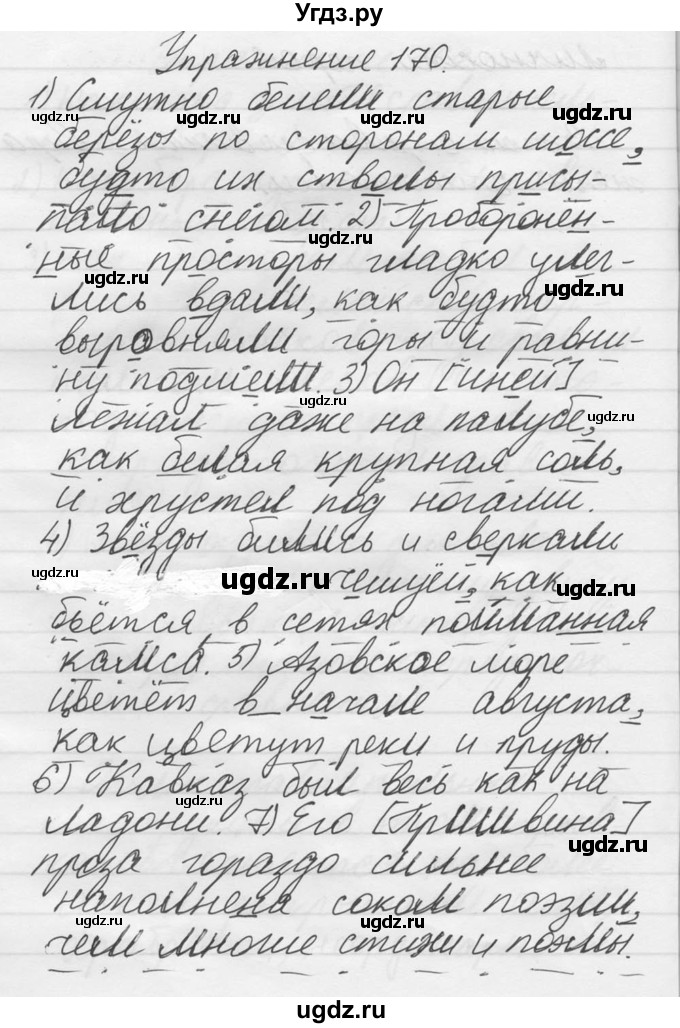 Угдз.ру
Упражнение 170.
1) Смутно белели старые
берёзы по сторонам шоссе,
будто их стволы присы-
пало снегом. 2) Проборонён-
ные просторы гладко улег-
лись вдали, как будто
выровняли горы и равни-
ну подмели. 3) Он [иней]
лежал даже на палубе,
как белая крупная соль,
и хрустел под ногами.
4) Звёзды бились и сверкали
чешуёй, как
бьётся в сетях пойманная
камса. 5) Азовское море
цветёт в начале августа,
как цветут реки и пруды.
6) Кавказ был весь как на
ладони. 7) Его [Пришвина]
проза гораздо сильнее
наполнена соком поэзии,
чем многие стихи и поэмы.
ugdz.ru